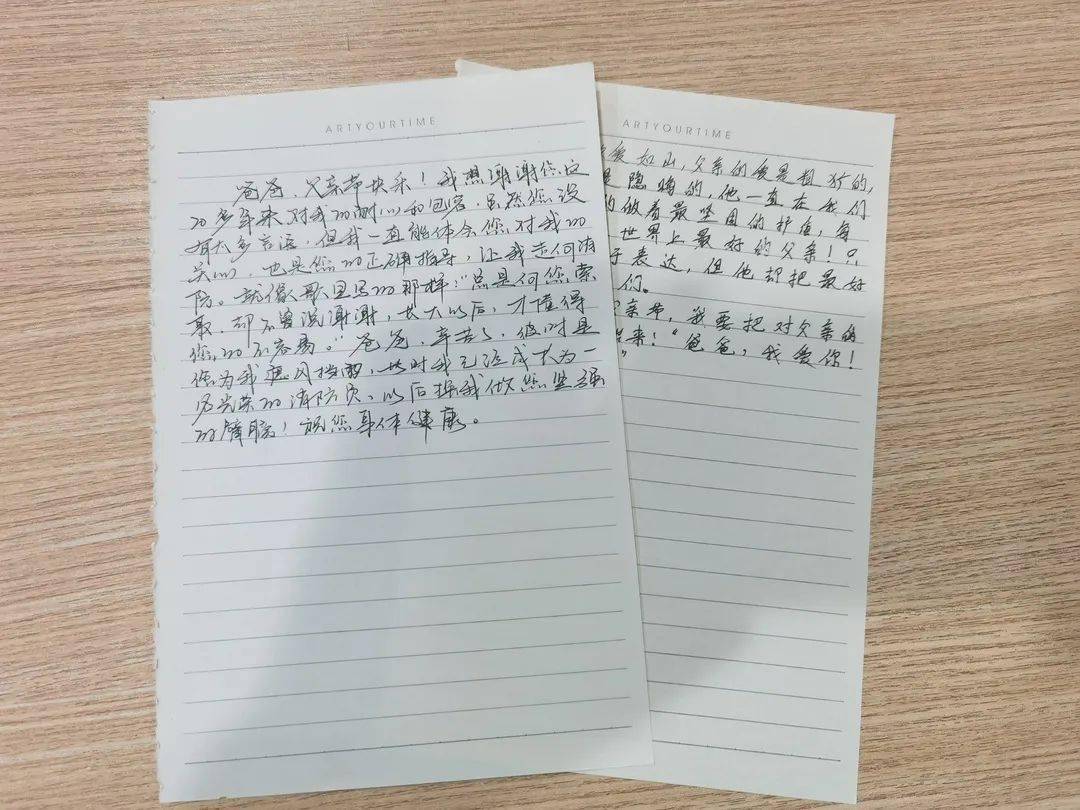 ARTYOURTIME
爸爸,父亲节快乐!我想谢谢您这
20多年来对我的耐心和包容,虽然您没
有太多言语,但我一直能体会您对我的
关心,也是您的正确指导,让我走向消
防。就像歌里写的那样:“总是向您索
取,却不曾说谢谢,长大以后,才懂得
您的不容易。”爸爸,辛苦了,彼时是
您为我遮风挡雨,此时我已经成长为一
名光荣的消防员,以后换我做您坚强
的臂膀!祝您身体健康。
ARTYOURTIME
爱如山,父亲的爱是粗犷的,
是隐晦的,他一直在我们
的做着最坚固的护盾,每
世界上最好的父亲!
于表达,但他却把最好
们。
父亲节,我要把对父亲的
来!“爸爸,我爱你!
”